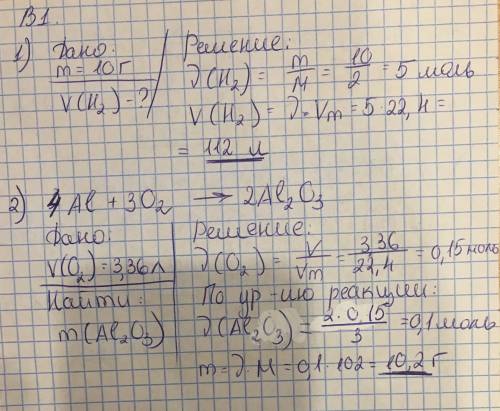 В1.
1) Дано:
m = 10 г
V(H₂) - ?
Решение:
ν(H₂) = m/M = 10/2 = 5 моль
V(H₂) = ν·Vm = 5·22,4 =
= 112 л
2) 4Al + 3O₂ → 2Al₂O₃
Дано:
V(O₂) = 3,36 л
Найти:
m(Al₂O₃)
Решение:
ν(O₂) = V/Vm = 3,36/22,4 = 0,15 моль
По ур-ию реакции:
ν(Al₂O₃) = 2·0,15/3 = 0,1 моль
m = ν·M = 0,1·102 = 10,2 г